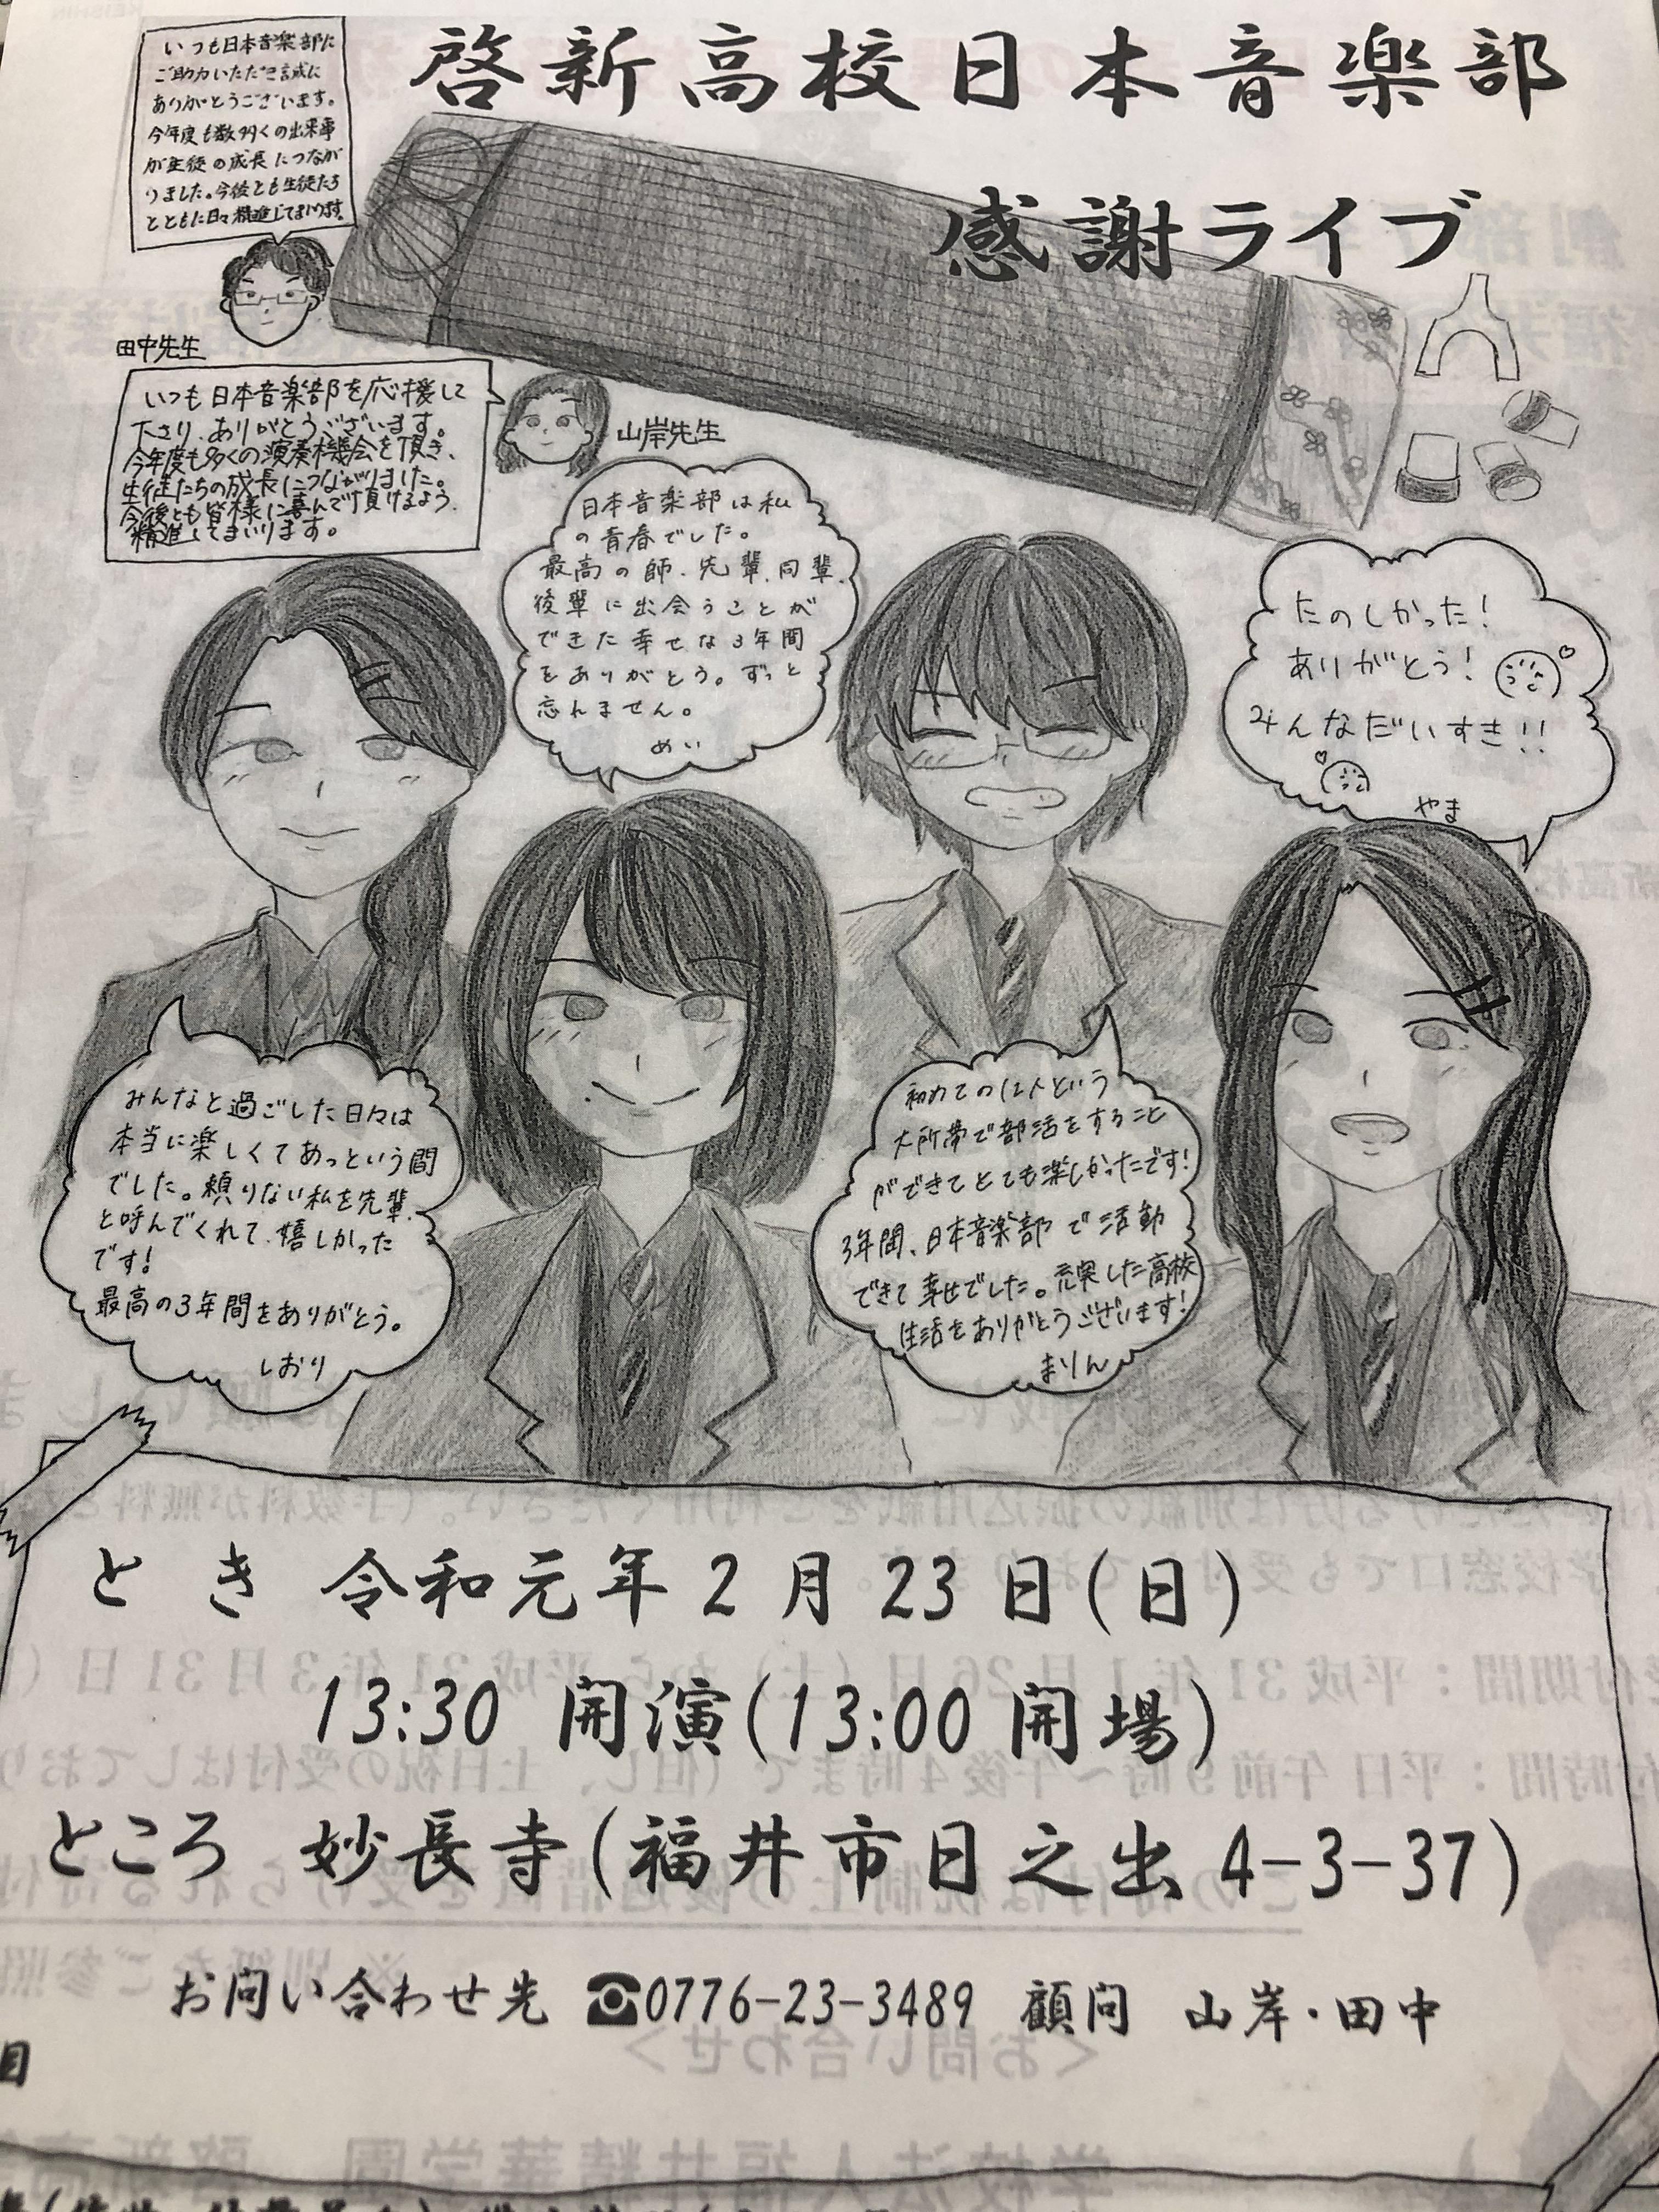 啓新高校日本音楽部
感謝ライブ
いつも日本音楽部に
ご助力いただき誠に
ありがとうございます。
今年度も数多くの出来事
が生徒の成長につなが
りました。今後とも生徒たち
とともに日々精進してまいります。
田中先生
いつも日本音楽部を応援して
下さり、ありがとうございます。
今年度も多くの演奏機会を頂き、
生徒たちの成長につながりました。
今後とも皆様に喜んで頂けるよう、
精進してまいります。
山岸先生
日本音楽部は私
の青春でした。
最高の師、先輩、同輩、
後輩に出会うことが
できた幸せな3年間
をありがとう。ずっと
忘れません。
めい
たのしかった!
ありがとう!
みんなだいすき!!
やま
みんなと過ごした日々は
本当に楽しくてあっという間
でした。頼りない私を先輩
と呼んでくれて、嬉しかった
です!
最高の3年間をありがとう。
しおり
初めての12人という
大所帯で部活をすること
ができてとても楽しかったです!
3年間、日本音楽部で活動
できて幸せでした。充実した高校
生活をありがとうございます!
まりん
とき 令和元年2月23日(日)
13:30 開演(13:00開場)
ところ 妙長寺(福井市日之出4-3-37)
お問い合わせ先 ☎0776-23-3489 顧問 山岸・田中